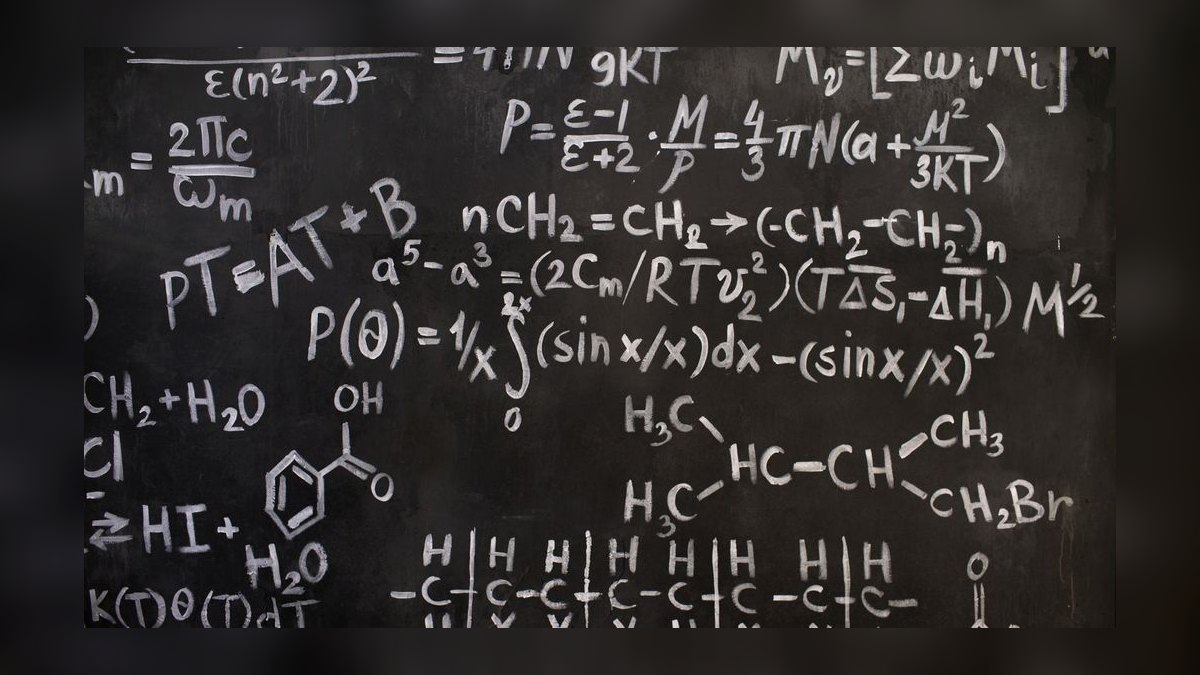 ε(n²+2)²
9KT
Mᵥ=[Σωᵢ Mᵢ]
P= (ε-1)/(ε+2) · M/ρ = 4/3 πN(a + M²/3KT)
m = 2πc/ωm
PT=AT+B
nCH₂=CH₂→(-CH₂-CH₂-)n
a⁵-a³=(2Cm/RTv₂²)(TΔS̅₁-ΔH̅₁) M¹/²
P(θ)=1/x ∫₀ (sin x/x)dx -(sinx/x)²
CH₂+H₂O
Cl
OH
O
H₃C
CH₃
HC-CH
H₃C
CH₂Br
⇄ HI +
H₂O
H H H H H H H H
-C-C-C-C-C-C-C-C-
O
K(T)θ(T)dT